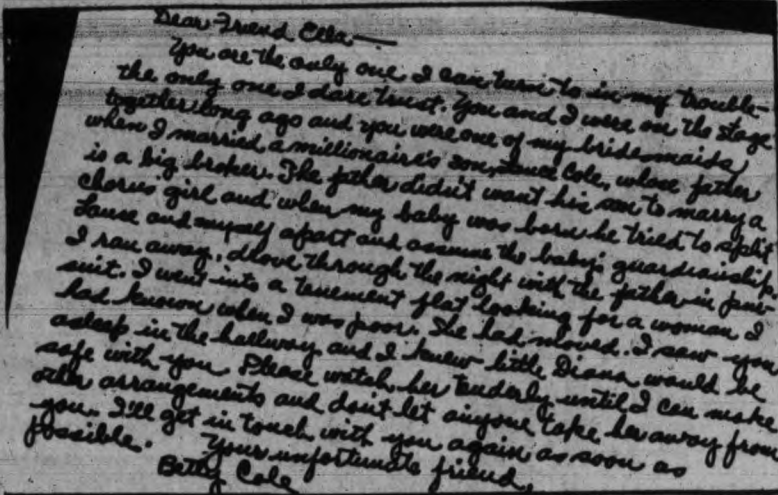 Dear Friend Ella—
You are the only one I can turn to in my trouble—
the only one I dare trust. You and I were on the stage
together long ago and you were one of my bridesmaids
when I married a millionaire's son, Cole, whose father
is a big broker. The father didn't want his son to marry a
chorus girl and when my baby was born he tried to split
and myself apart and assume the baby's guardianship.
I ran away, drove through the night with the father in pur-
suit. I went into a tenement flat looking for a woman I
had known when I was poor. She had moved. I saw you
asleep in the hallway and I knew little Diana would be
safe with you. Please watch her tenderly until I can make
other arrangements and don't let anyone take her away from
you. I'll get in touch with you again as soon as
possible.
Your unfortunate friend,
Betty Cole